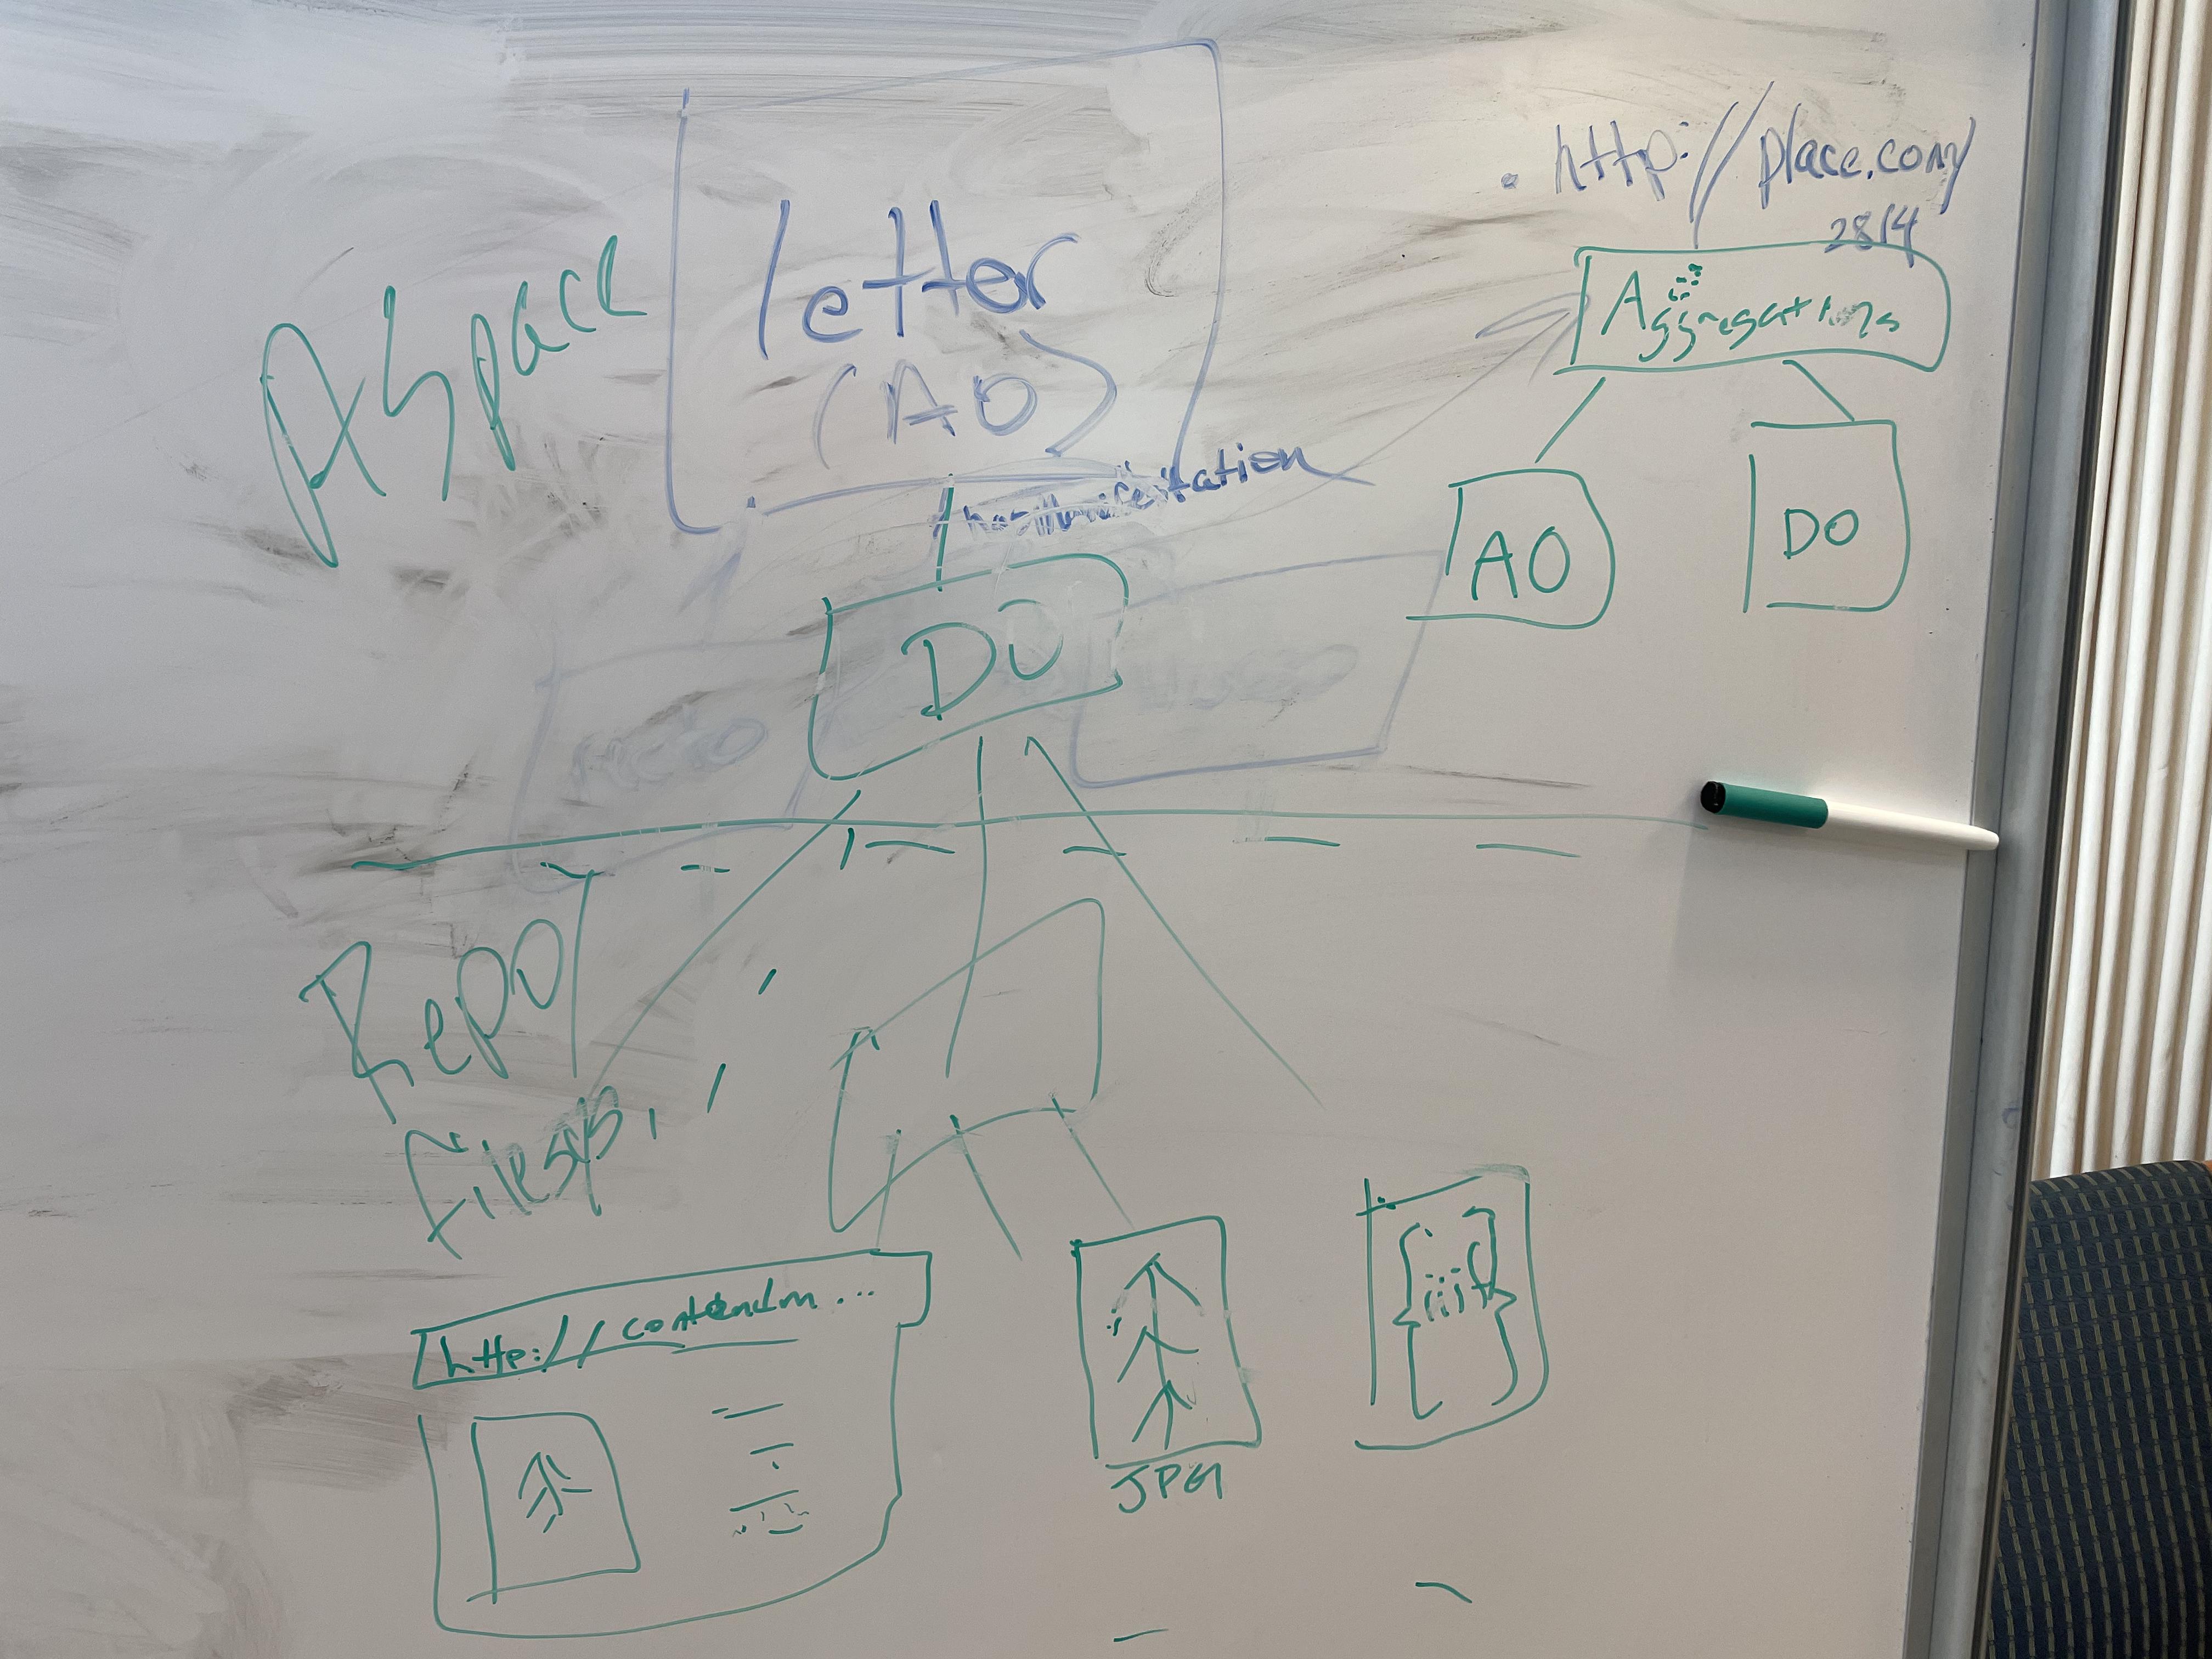 ASpace
letter
(AO)
hasManifestation
. http://place.com/
2814
Aggregations
AO
DO
DO
Repo/
filesys.
http://contendm...
JPG
{iiif}